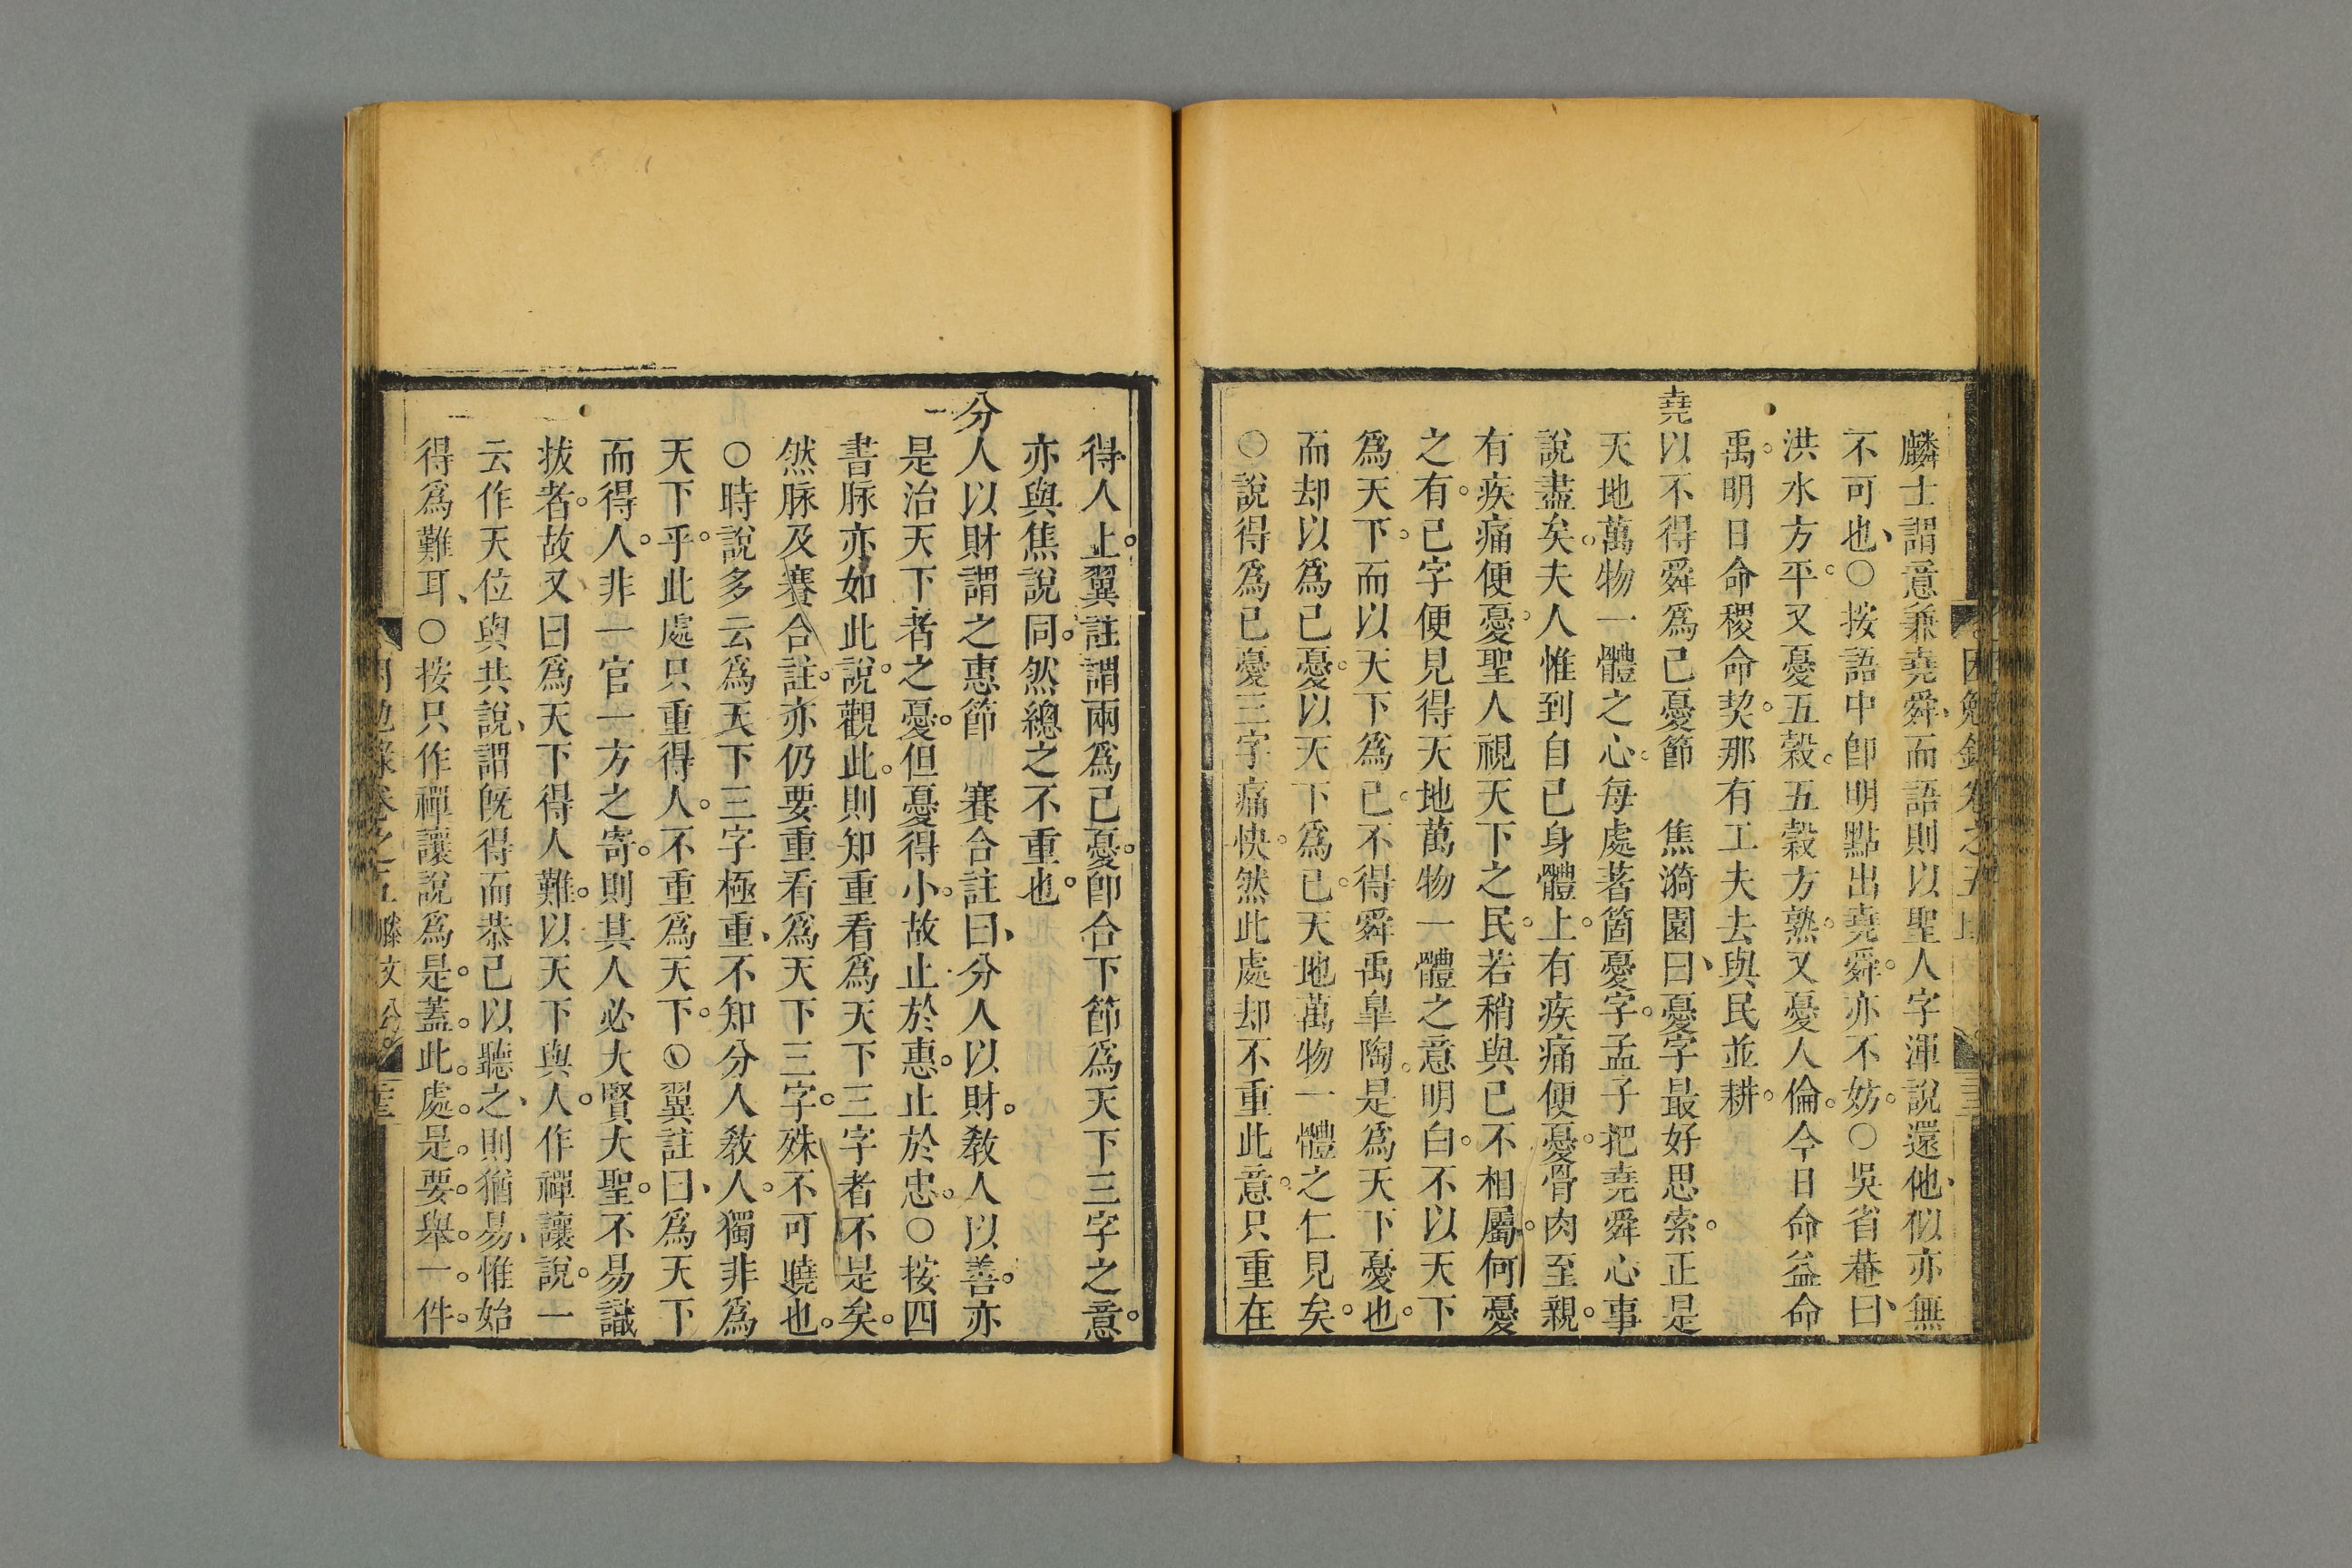 麟士謂意兼堯舜而語則以聖人字渾說還他似亦無
不可也○按語中卽明點出堯舜亦不妨○吳省菴曰
洪水方平又憂五穀五穀方熟又憂人倫今日命益命
禹明日命稷命契那有工夫去與民並耕
堯以不得舜爲己憂節 焦漪園曰憂字最好思索正是
天地萬物一體之心每處著箇憂字孟子把堯舜心事
說盡矣夫人惟到自己身體上有疾痛便憂骨肉至親
有疾痛便憂聖人視天下之民若稍與己不相屬何憂
之有己字便見得天地萬物一體之意明白不以天下
爲天下而以天下爲己不得舜禹臯陶是爲天下憂也
而却以爲己憂以天下爲己天地萬物一體之仁見矣
○說得爲己憂三字痛快然此處却不重此意只重在
得人上翼註謂兩爲己憂卽合下節爲天下三字之意
亦與焦說同然總之不重也
分人以財謂之惠節 賽合註曰分人以財教人以善亦
是治天下者之憂但憂得小故止於惠止於忠○按四
書脉亦如此說觀此則知重看爲天下三字者不是矣
然脉及賽合註亦仍要重看爲天下三字殊不可曉也
○時說多云爲天下三字極重不知分人教人獨非爲
天下乎此處只重得人不重爲天下○翼註曰爲天下
而得人非一官一方之寄則其人必大賢大聖不易識
拔者故又曰爲天下得人難以天下與人作禪讓說一
云作天位與共說謂旣得而恭己以聽之則猶易惟始
得爲難耳○按只作禪讓說爲是蓋此處是要舉一件